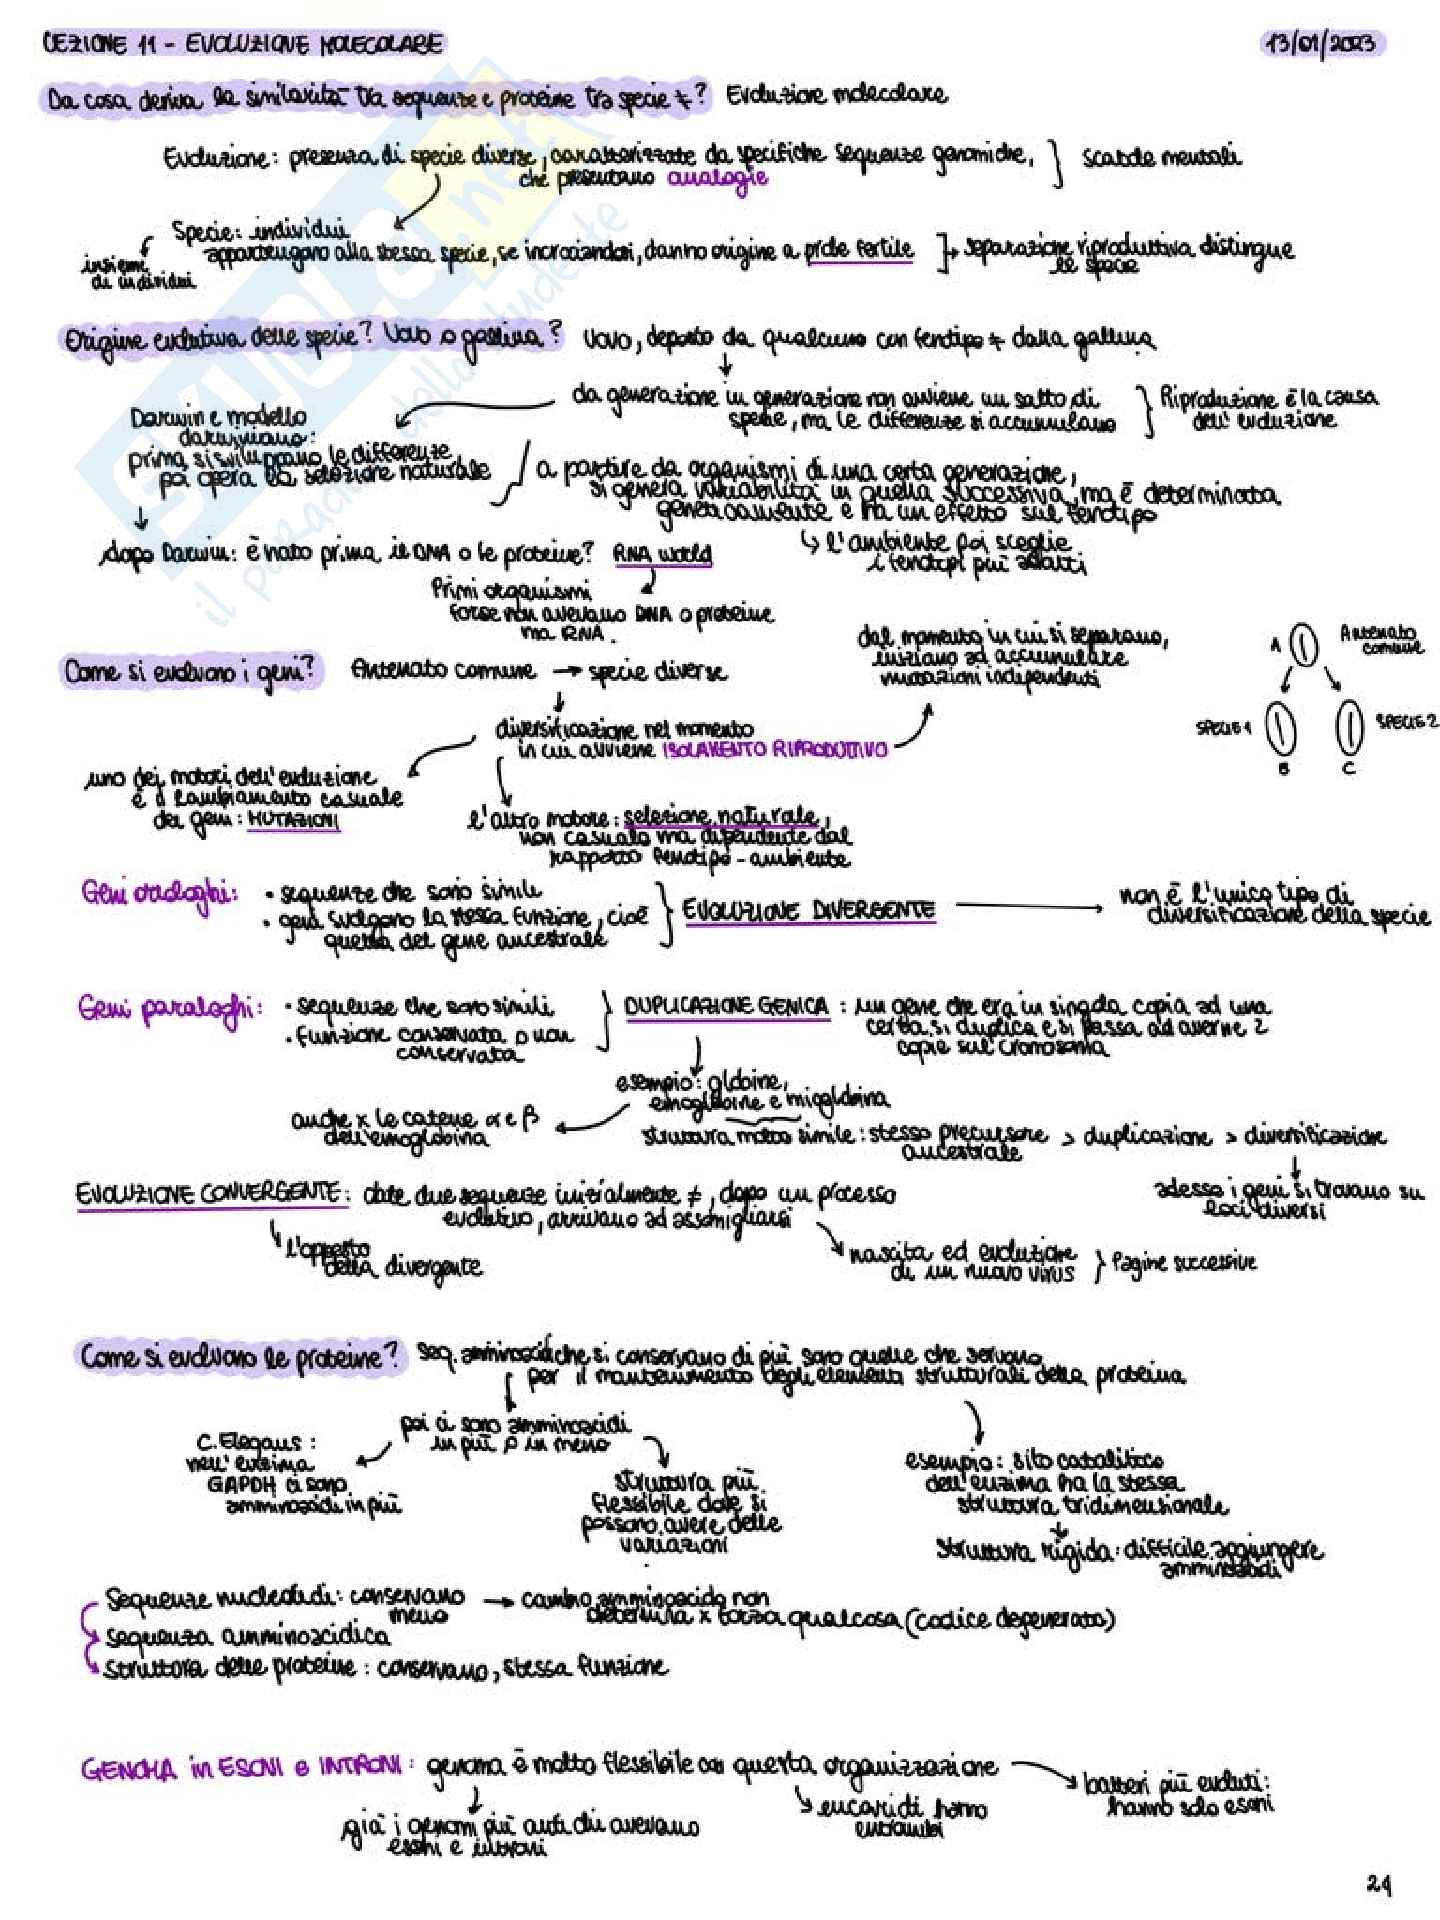 LEZIONE 11 - EVOLUZIONE MOLECOLARE
13/01/2023
Da cosa deriva la similarità tra sequenze e proteine tra specie ≠? Evoluzione molecolare
Evoluzione: presenza di specie diverse, caratterizzate da specifiche sequenze genomiche,
che presentano analogie
scatole mentali
Specie: individui
appartengono alla stessa specie, se incrociandosi, danno origine a prole fertile
separazione riproduttiva distingue
le specie
insieme
di individui
Origine evolutiva delle specie? Uovo o gallina? Uovo, deposto da qualcuno con fenotipo ≠ dalla gallina
da generazione in generazione non avviene un salto di
specie, ma le differenze si accumulano
Riproduzione è la causa
dell'evoluzione
Darwin e modello
darwiniano:
prima si sviluppano le differenze,
poi opera la selezione naturale
a partire da organismi di una certa generazione,
si genera variabilità in quella successiva, ma è determinata
geneticamente e ha un effetto sul fenotipo
↳ l'ambiente poi sceglie
i fenotipi più adatti
dopo Darwin: è nato prima il DNA o le proteine? RNA world
Primi organismi
forse non avevano DNA o proteine
ma RNA.
Come si evolvono i geni? Antenato comune → specie diverse
dal momento in cui si separano,
iniziano ad accumulare
mutazioni indipendenti
A
Antenato
comune
SPECIE 1
SPECIE 2
B
C
diversificazione nel momento
in cui avviene ISOLAMENTO RIPRODUTTIVO
uno dei motori dell'evoluzione
è il cambiamento casuale
dei geni: MUTAZIONI
l'altro motore: selezione naturale,
non casuale ma dipendente dal
rapporto fenotipo - ambiente
Geni ortologhi:
• sequenze che sono simili
• geni svolgono la stessa funzione, cioè
quella del gene ancestrale
EVOLUZIONE DIVERGENTE
non è l'unico tipo di
diversificazione della specie
Geni paraloghi:
• sequenze che sono simili
• funzione conservata o non
conservata
DUPLICAZIONE GENICA: un gene che era in singola copia ad una
certa si duplica e si passa ad averne 2
copie sul cromosoma
esempio: globine,
emoglobine e mioglobina
anche x le catene α e β
dell'emoglobina
struttura molto simile: stesso precursore > duplicazione > diversificazione
ancestrale
adesso i geni si trovano su
loci diversi
EVOLUZIONE CONVERGENTE: date due sequenze inizialmente ≠, dopo un processo
evolutivo, arrivano ad assomigliarsi
l'opposto
della divergente
nascita ed evoluzione
di un nuovo virus
Pagine successive
Come si evolvono le proteine? Seq. amminoacidiche si conservano di più sono quelle che servono
per il mantenimento degli elementi strutturali della proteina
poi ci sono amminoacidi
in più o in meno
C. Elegans:
nell'enzima
GAPDH ci sono
amminoacidi in più
struttura più
flessibile dove si
possono avere delle
variazioni
esempio: sito catalitico
dell'enzima ha la stessa
struttura tridimensionale
struttura rigida: difficile aggiungere
amminoacidi
Sequenze nucleotidi: conservano
meno
→ cambio amminoacido non
determina x forza qualcosa (codice degenerato)
sequenza amminoacidica
struttura delle proteine: conservano, stessa funzione
GENOMA in ESONI e INTRONI: genoma è molto flessibile con questa organizzazione
già i genomi più antichi avevano
esoni e introni
eucarioti hanno
entrambi
batteri più evoluti:
hanno solo esoni
21
SKUOLA.net
il paradiso dello studente